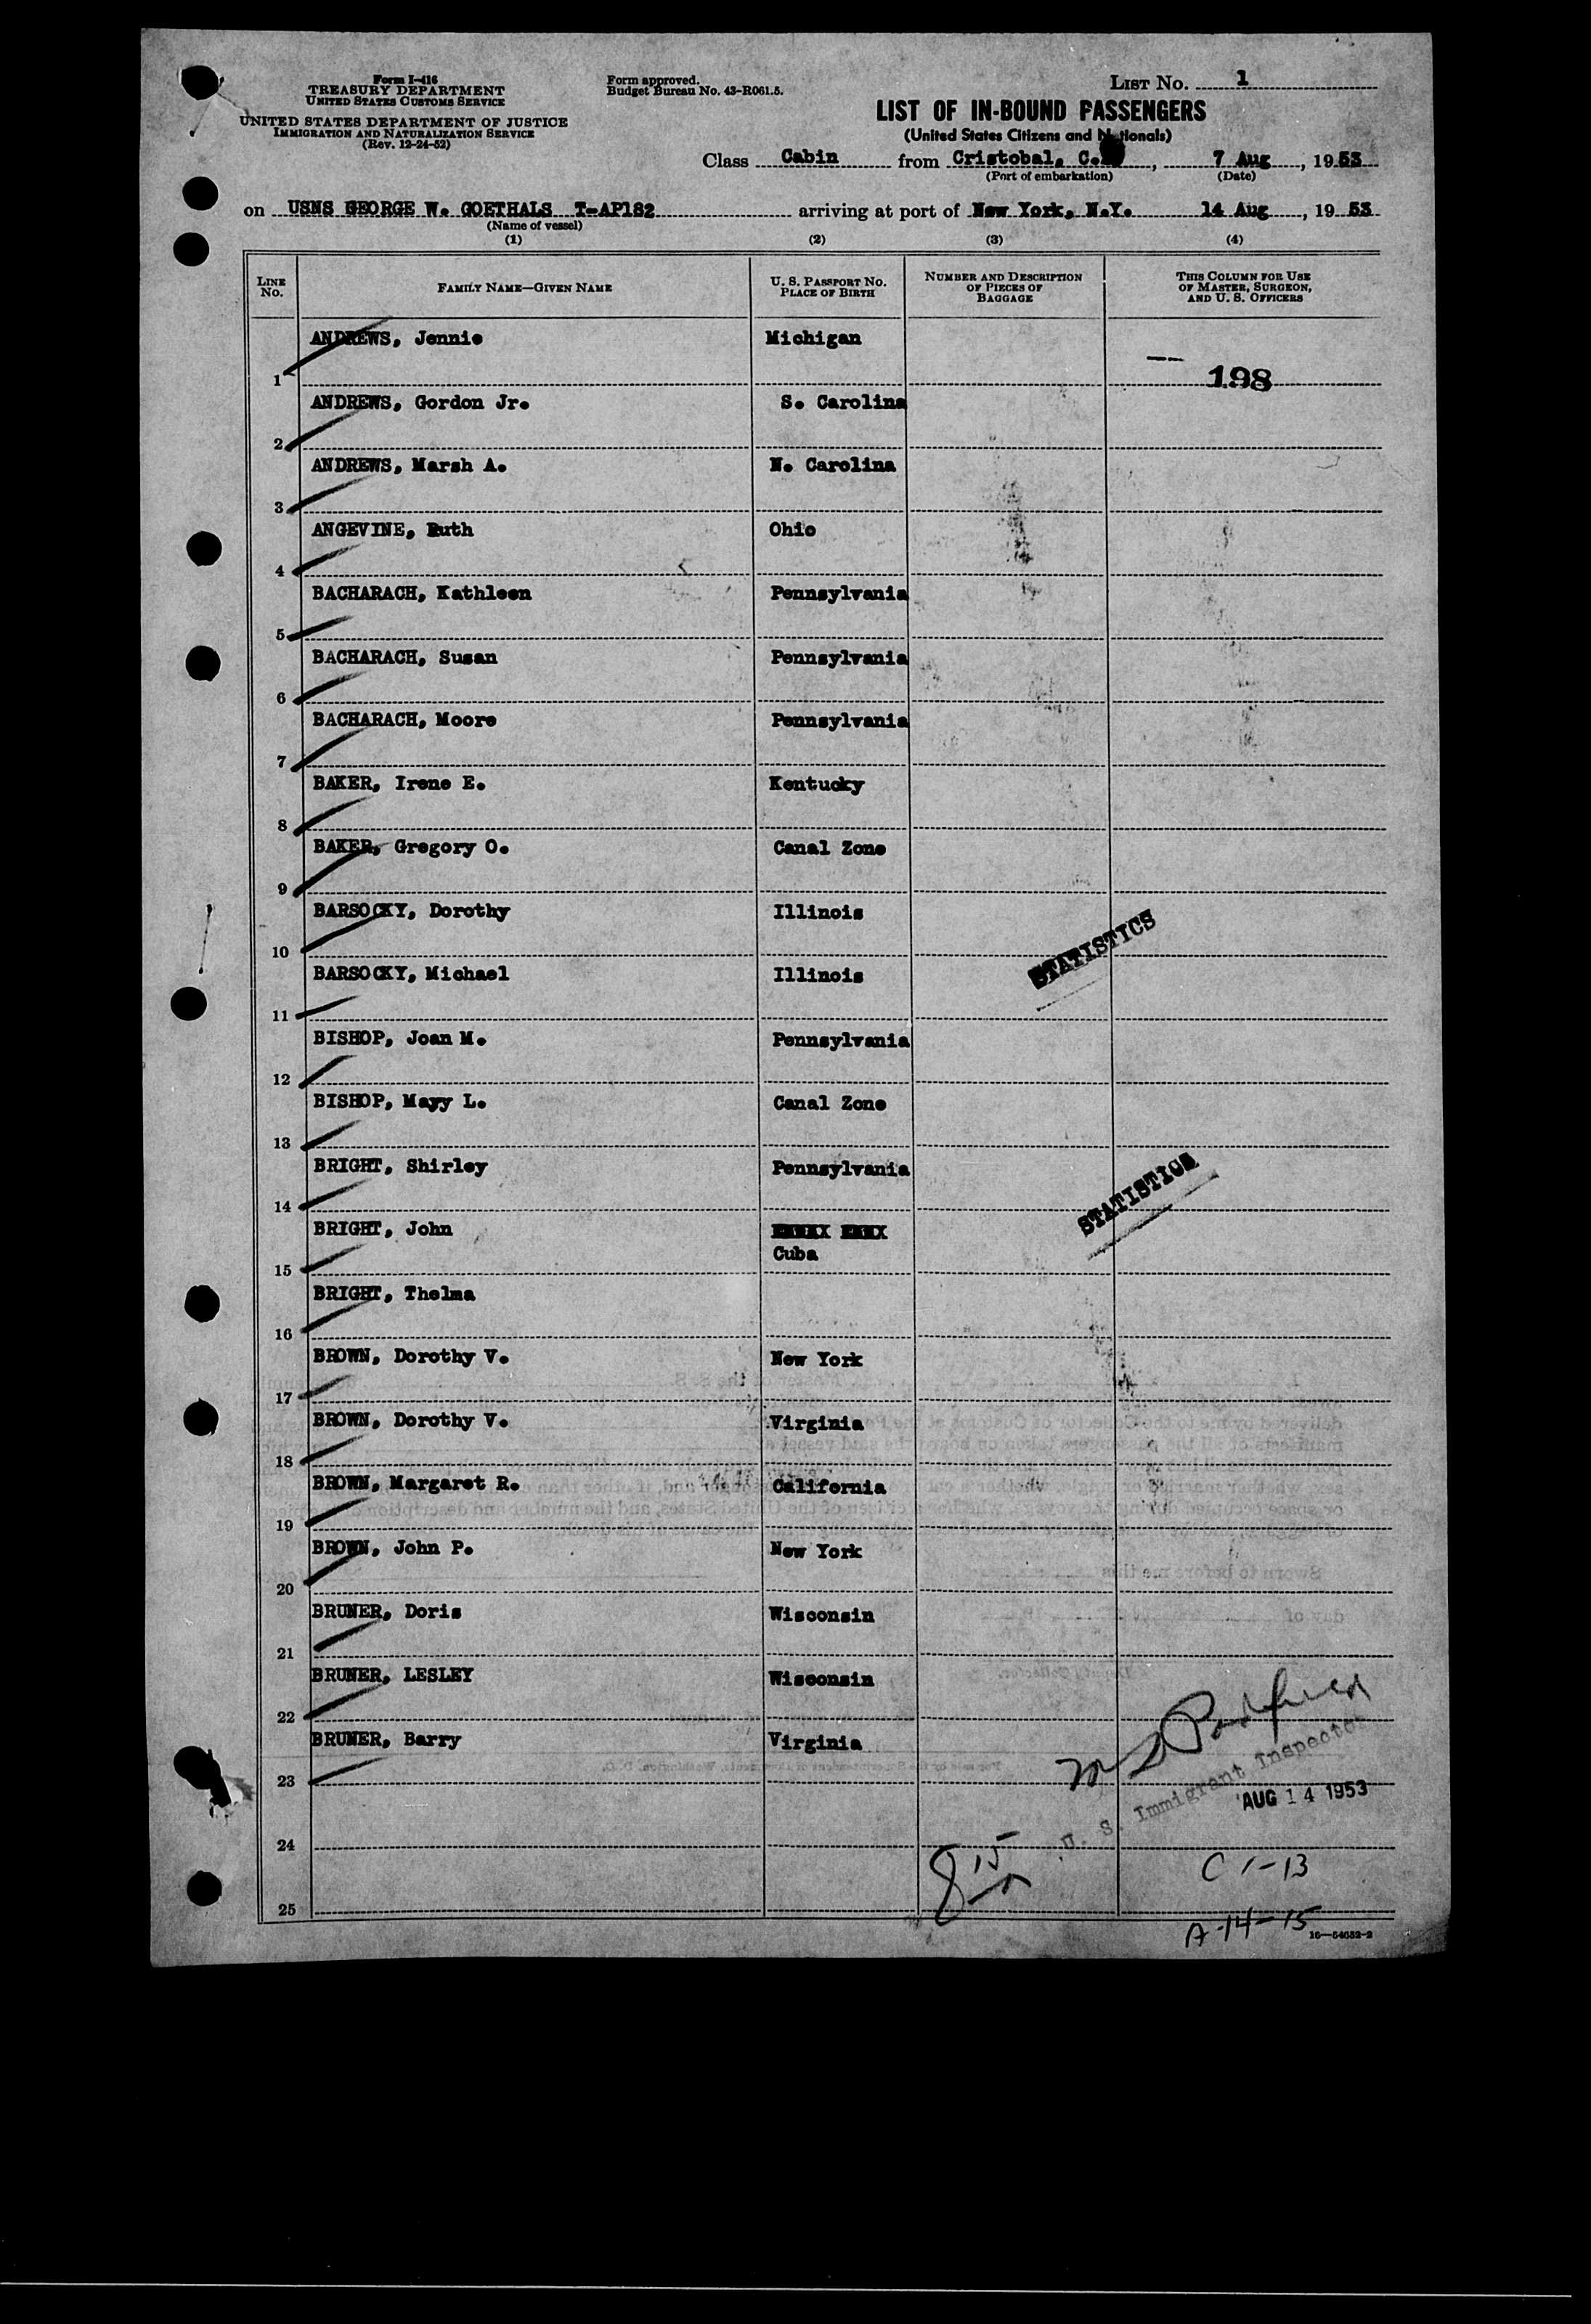 Form I-416
TREASURY DEPARTMENT
UNITED STATES CUSTOMS SERVICE
UNITED STATES DEPARTMENT OF JUSTICE
IMMIGRATION AND NATURALIZATION SERVICE
(Rev. 12-24-52)
Form approved.
Budget Bureau No. 43-R061.5.
LIST NO. 1
LIST OF IN-BOUND PASSENGERS
(United States Citizens and Nationals)
Class Cabin from Cristobal, C. , 7 Aug , 1953
(Port of embarkation) (Date)
on USNS GEORGE W. GOETHALS T-AP182 arriving at port of New York, N.Y. 14 Aug , 19 53
(Name of vessel)
(1) (2) (3) (4)
LINE NO. FAMILY NAME—GIVEN NAME U. S. PASSPORT NO. PLACE OF BIRTH NUMBER AND DESCRIPTION OF PIECES OF BAGGAGE THIS COLUMN FOR USE OF MASTER, SURGEON, AND U. S. OFFICERS
1 ANDREWS, Jennie Michigan 198
2 ANDREWS, Gordon Jr. S. Carolina
3 ANDREWS, Marsh A. N. Carolina
4 ANGEVINE, Ruth Ohio
5 BACHARACH, Kathleen Pennsylvania
6 BACHARACH, Susan Pennsylvania
7 BACHARACH, Moore Pennsylvania
8 BAKER, Irene E. Kentucky
9 BAKER, Gregory O. Canal Zone
10 BARSOCKY, Dorothy Illinois
STATISTICS
11 BARSOCKY, Michael Illinois
12 BISHOP, Joan M. Pennsylvania
13 BISHOP, Mayy L. Canal Zone
14 BRIGHT, Shirley Pennsylvania
STATISTICS
15 BRIGHT, John Cuba
16 BRIGHT, Thelma
17 BROWN, Dorothy V. New York
18 BROWN, Dorothy V. Virginia
19 BROWN, Margaret R. California
20 BROWN, John P. New York
21 BRUNER, Doris Wisconsin
22 BRUNER, LESLEY Wisconsin
23 BRUNER, Barry Virginia
U. S. Immigrant Inspector
AUG 14 1953
24
C 1-13
25
A-14-15
16—54632-2